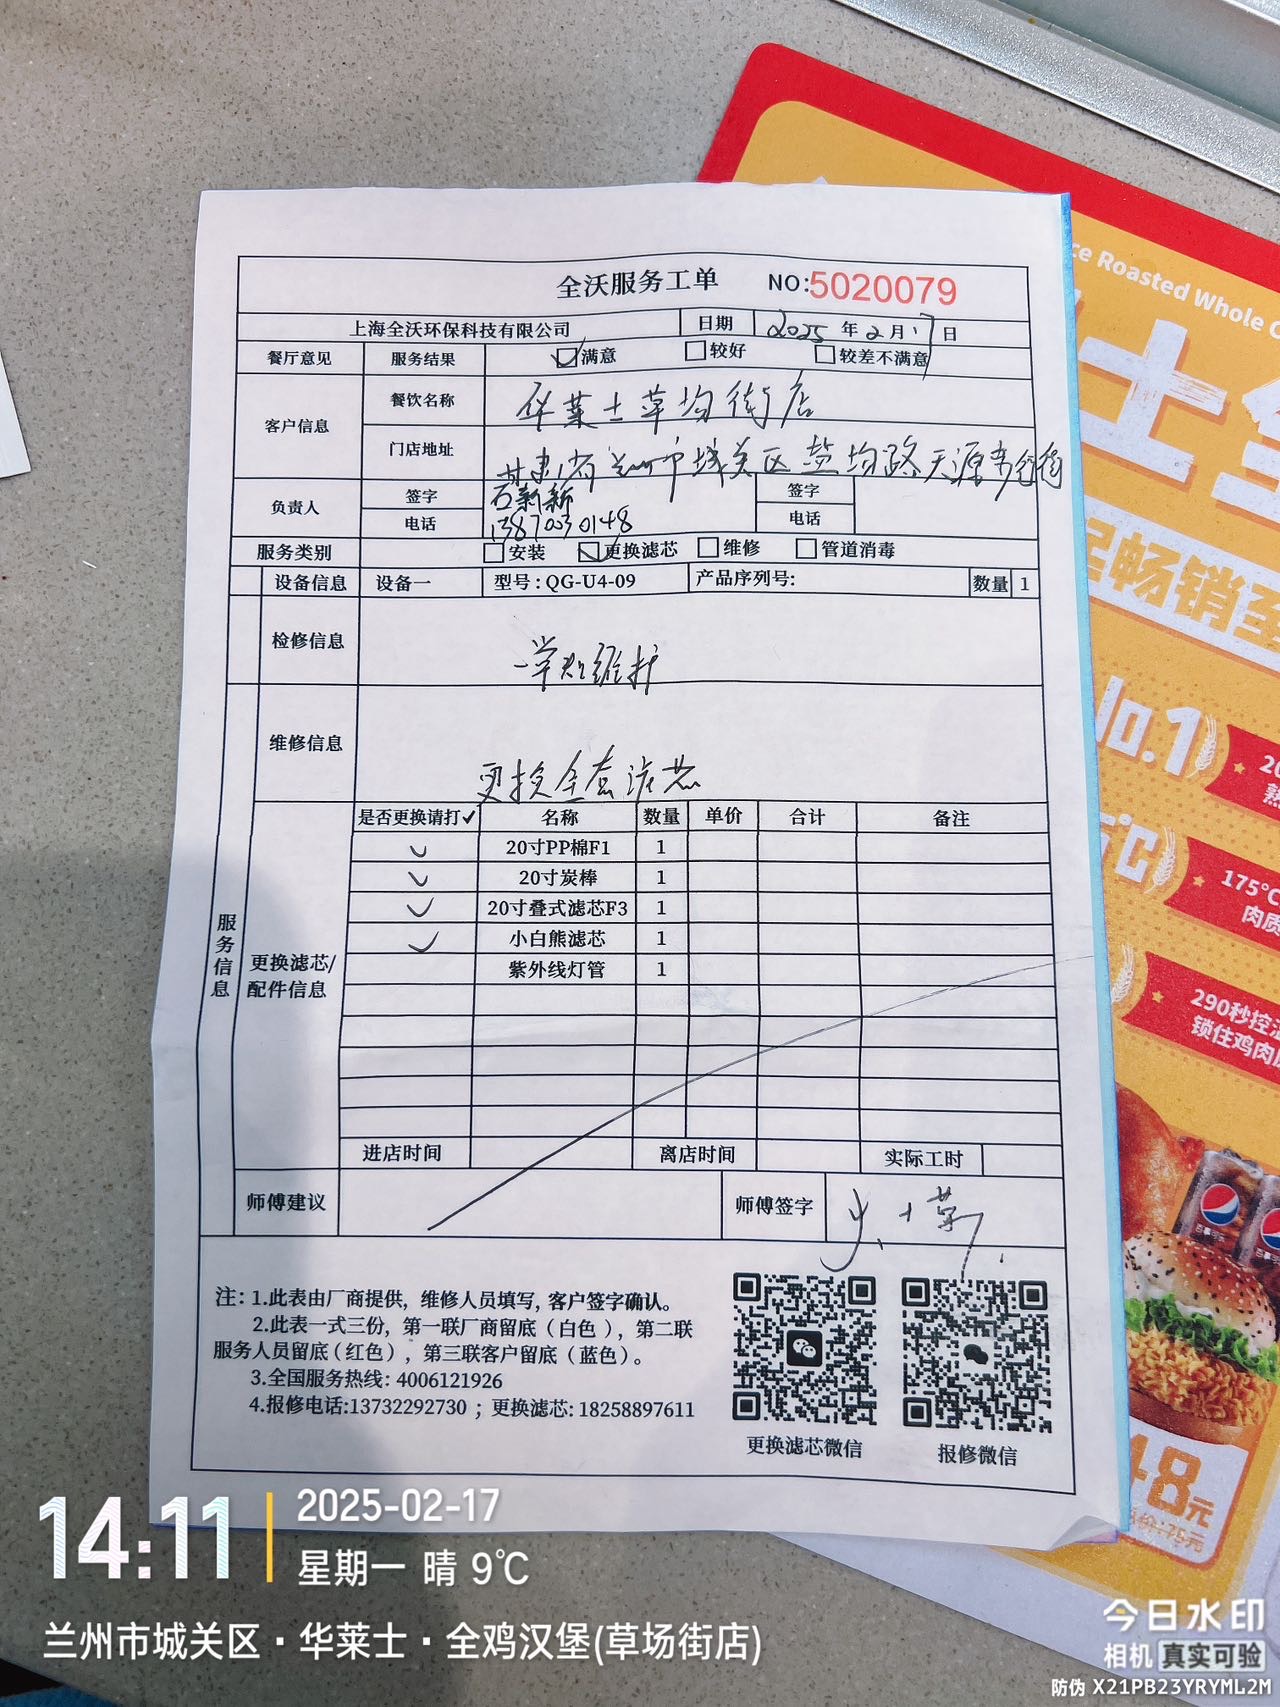 全沃服务工单 NO:5020079
上海全沃环保科技有限公司 日期 2025 年 2 月 17 日
餐厅意见 服务结果 满意 较好 较差不满意
客户信息 餐饮名称 华莱士草场街店
门店地址 甘肃省兰州市城关区盐场路天源
负责人 签字 石新新 签字
电话 电话
服务类别 安装 更换滤芯 维修 管道消毒
设备信息 设备一 型号：QG-U4-09 产品序列号: 数量 1
检修信息 维护
维修信息 更换全套滤芯
服务信息
更换滤芯/配件信息
是否更换请打✓ 名称 数量 单价 合计 备注
✓ 20寸PP棉F1 1
✓ 20寸炭棒 1
✓ 20寸叠式滤芯F3 1
✓ 小白熊滤芯 1
紫外线灯管 1
进店时间 离店时间 实际工时
师傅建议 师傅签字
注：1.此表由厂商提供，维修人员填写，客户签字确认。
2.此表一式三份，第一联厂商留底（白色），第二联
服务人员留底（红色），第三联客户留底（蓝色）。
3.全国服务热线：4006121926
4.报修电话:13732292730 ；更换滤芯: 18258897611
更换滤芯微信 报修微信
ce Roasted Whole C
士全
起畅销至
No.1
175°C
肉质
290秒控
锁住鸡肉
48元
14:11 2025-02-17
星期一 晴 9℃
兰州市城关区·华莱士·全鸡汉堡(草场街店)
今日水印
相机 真实可验
防伪 X21PB23YRYML2M